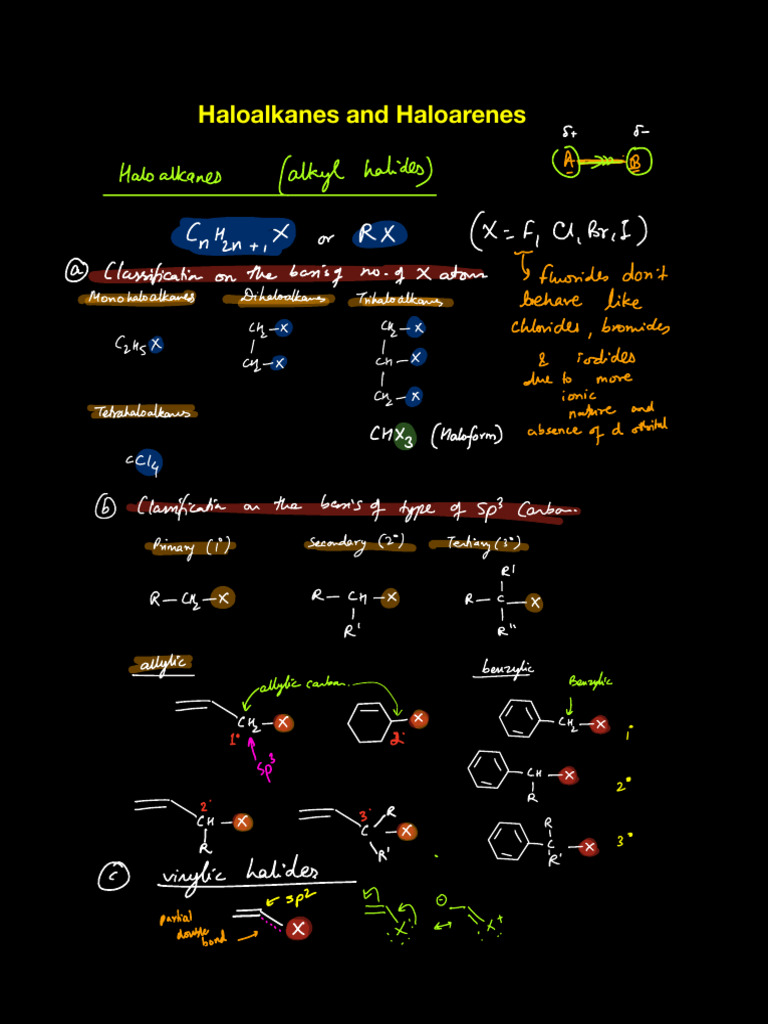 Haloalkanes and Haloarenes
δ+ δ-
A B
Haloalkanes (alkyl halides)
CnH2n+1X or RX (X = F, Cl, Br, I)
(a) Classification on the basis of no. of X atom
fluorides don't
behave like
chlorides, bromides
& iodides
due to more
ionic
nature and
absence of d orbital
Monohaloalkanes Dihaloalkanes Trihaloalkanes
C2H5X
CH2-X CH2-X
CH2-X CH-X
CH2-X
Tetrahaloalkanes
CHX3 (Haloform)
CCl4
(b) Classification on the basis of type of sp3 Carbon.
Primary (1°) Secondary (2°) Tertiary (3°)
R-CH2-X
R-CH-X
R'
R'
R-C-X
R"
allylic benzylic
allylic carbon Benzylic
CH2-X X CH2-X
1° 2° 1°
sp3
CH-X 2°
R
2° 3°
CH-X
R
R
C X
R'
R
C-X 3°
R'
(c) vinylic halides
sp2
partial
double
bond
X
X ⊖ X+